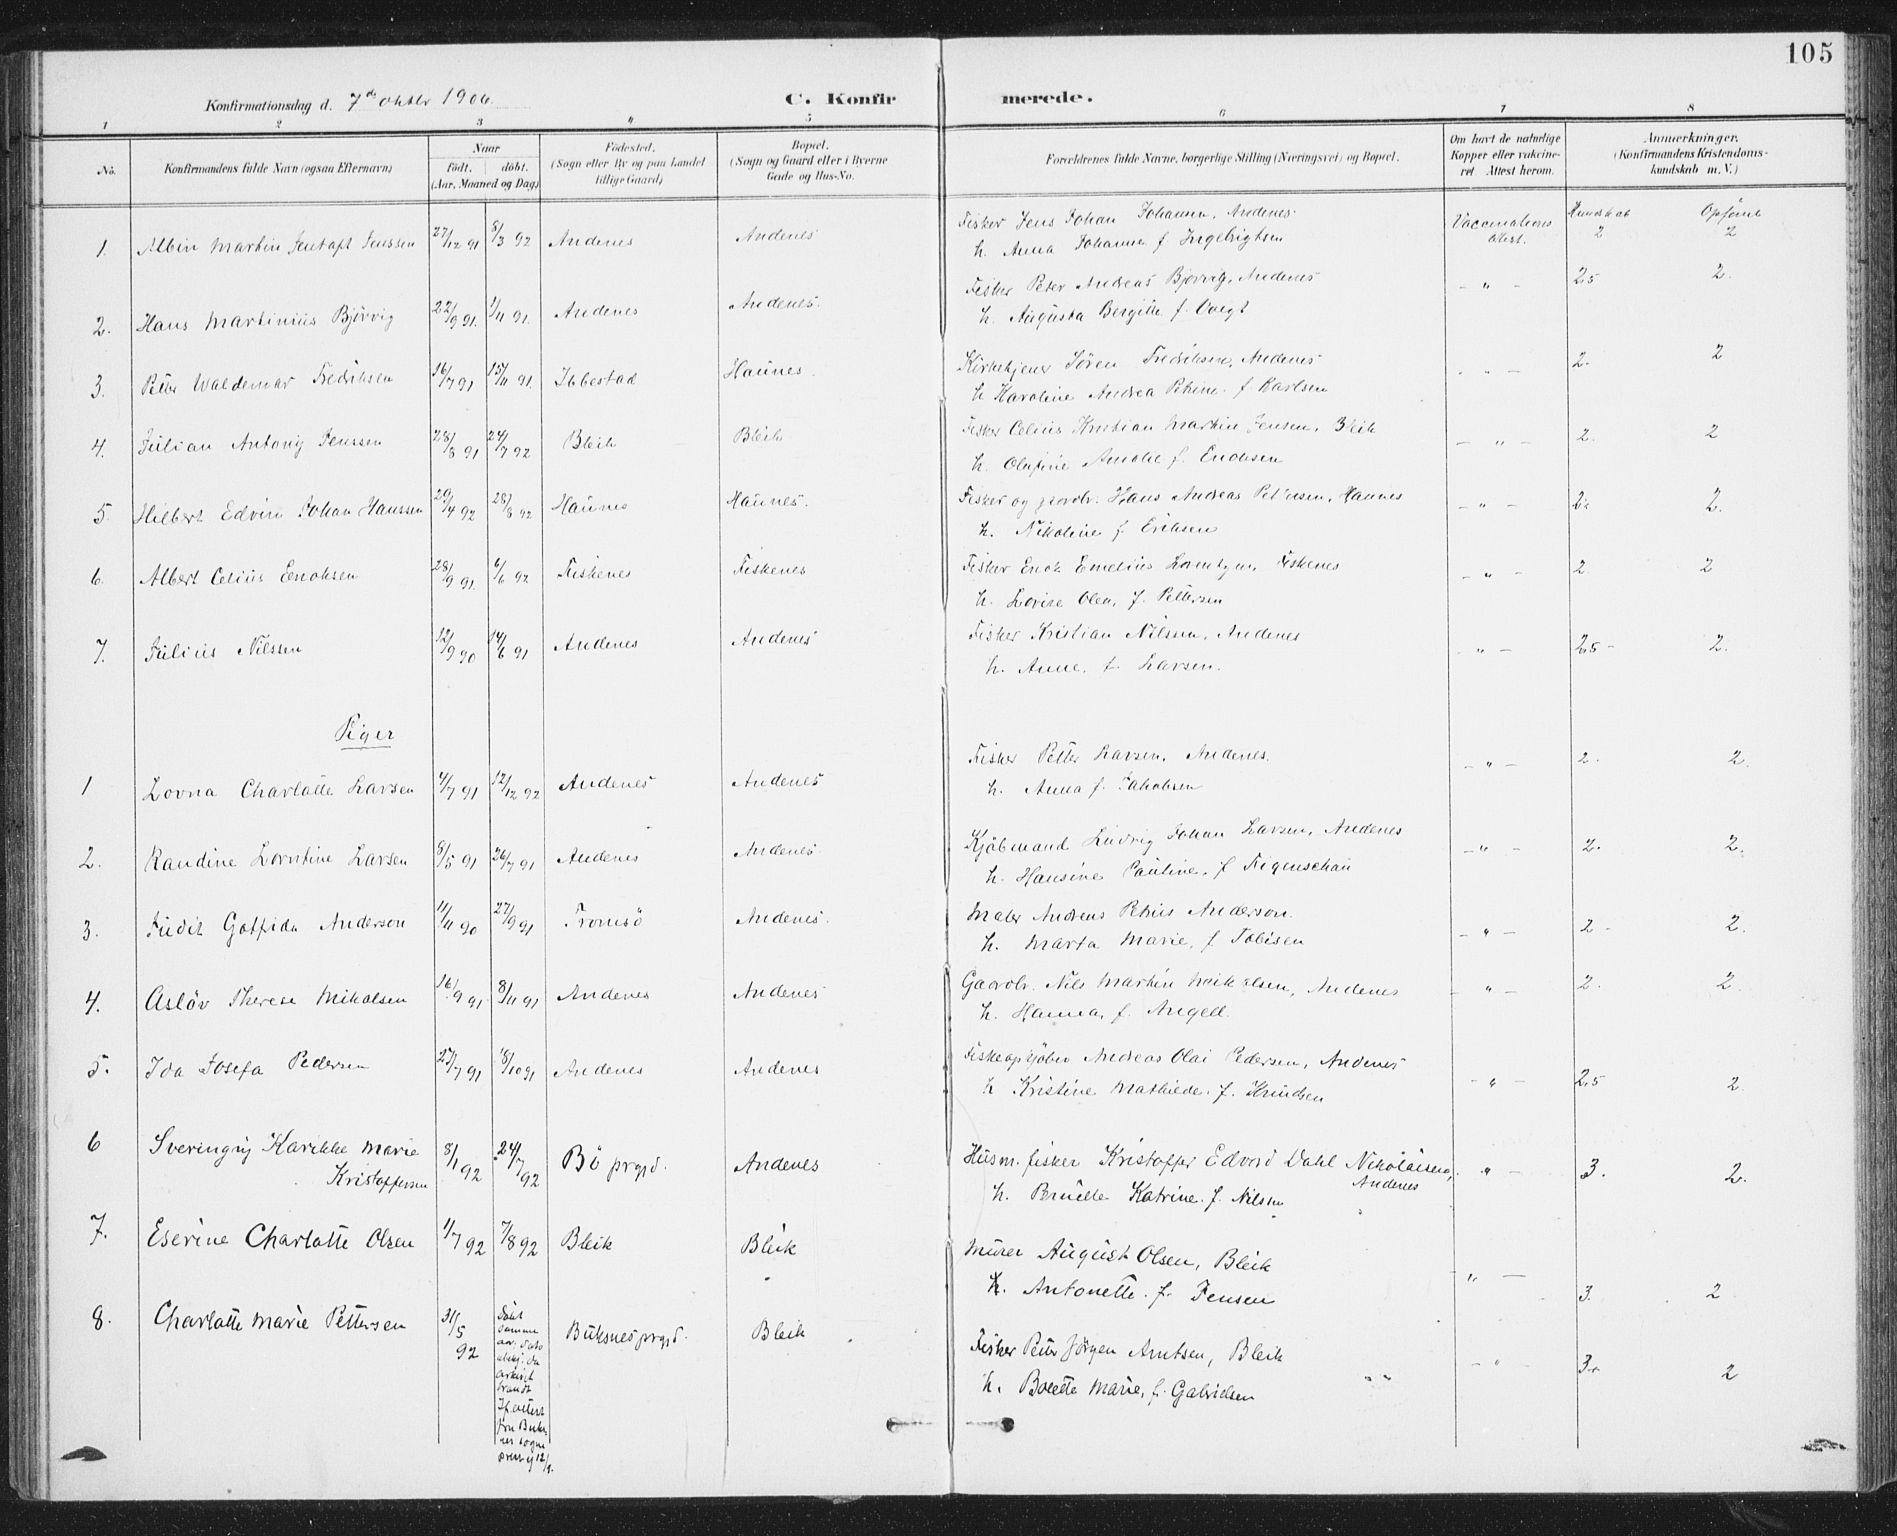 105
Konfirmationsdag d. 7de oktbr 1906.
C. Konfirmerede.
1 2 3 4 5 6 7 8
No.
Konfirmandens fulde Navn (ogsaa Efternavn)
Naar
født. døbt.
(Aar, Maaned og Dag)
Fødested.
(Sogn eller By og paa Landet
tillige Gaard)
Bopæl.
(Sogn og Gaard eller i Byerne
Gade og Hus-No.
Forældrenes fulde Navne, borgerlige Stilling (Næringsvei) og Bopæl.
Om havt de naturlige
Kopper eller vaccine-
ret Attest herom.
Anmærkninger.
(Konfirmandens Kristendoms-
kundskab m. V.)
1. Albin Martin Jentoft Jenssen 27/12 91 8/3 92 Andenes Andenes
Fisker Jens Johan Johansen, Andenes
h. Anna Johanna f. Ingebrigtsen
Vaccinations attest. Kundskab 2 Opførsel 2
2. Hans Martinius Bjørvig 22/9 91. 1/11 91. Andenes Andenes.
Fisker Peter Andreas Bjørvig, Andenes
h. Augusta Bergitte f. Voigt
- " - 2,5 2.
3. Peter Waldemar Fredriksen 16/7 91 15/11 91. Ibbestad Haunes.
Kirketjener Søren Fredriksen, Andenes
h Karoline Andrea Petrine f. Karlsen
- " - 2. 2
4. Julian Antonij Jenssen 28/8 91 24/7 92 Bleik Bleik
Fisker Celius Kristian Martin Jensen, Bleik
h. Olufine Amalie f. Enoksen
- " - 2. 2
5. Hilbert Edvin Johan Hanssen 29/4 92 28/8 92 Haunes Haunes.
Fisker og gaardbr. Hans Andreas Petersen, Haunes
h. Nikoline f. Eriksen
- " - 2. 2.
6. Albert Celius Enoksen 28/9 91. 6/6 92 Fiskenes Fiskenes
Fisker Enok Emelius Lorentzen, Fiskenes
h. Lovise Olea, f. Pettersen
- " - 2 2
7. Julius Nilssen 12/9 90 14/6 91 Andenes Andenes
Fisker Kristian Nilsen, Andenes
h. Anne, f. Larsen.
- " - 2,5 - 2.
Piger
1 Lovna Charlotte Larsen 4/7 91 12/12 92 Andenes Andenes
Fisker Petter Larsen, Andenes.
h. Anna f. Jakobsen
- " - 2. 2.
2. Randine Lorntine Larsen 8/5 91 26/7 91 Andenes Andenes
Kjøbmand Ludvig Johan Larsen, Andenes
h. Hansine Pauline, f Figenschau
- " - 2. 2.
3. Judit Gotfida Anderson 11/11 90 27/9 91 Tromsö Andenes.
Maler Andreas Petrus Anderson.
h. Marta Marie, f Tobisen
- " - 2 - 2.
4. Asløv Therese Mikalsen 16/9 91 8/11 91 Andenes Andenes
Gaardbr. Nils Martin Mikalsen, Andenes
h. Hanna, f. Angell.
- " - 2. 2.
5. Ida Josefa Pedersen 27/7 91 18/10 91 Andenes Andenes
Fiskeopkjøber Andreas Olai Pedersen, Andenes
h Kristine Mathilde. f. Knudsen
- " - 2,5 2.
6 Karikke Marie 8/1 92 24/7 92 Bö prgjd. Andenes
Kristoffersen
Husm. fisker Kristoffer Edvard Dahl Nikolaisen,
Andenes
h. Katrine. f. Nilsen
" - 3. 2.
7. Eserine Charlotte Olsen 1/7 92 7/8 92 Bleik Bleik
Murer August Olsen, Bleik
h. Antonette. f. Jensen
- " - 3. 2
8. Charlotte Marie Pettersen 31/5 92 Buksnes prgjd. Bleik
Døbt
samme
aar, dato
ubekj. da
arkivet
brændt
If. attest
fra Buks-
nes sogne
12/9.
Fisker Peter Jørgen Arntsen, Bleik
h. Bolette Marie, f. Gabrielsen
- " - 3. 2